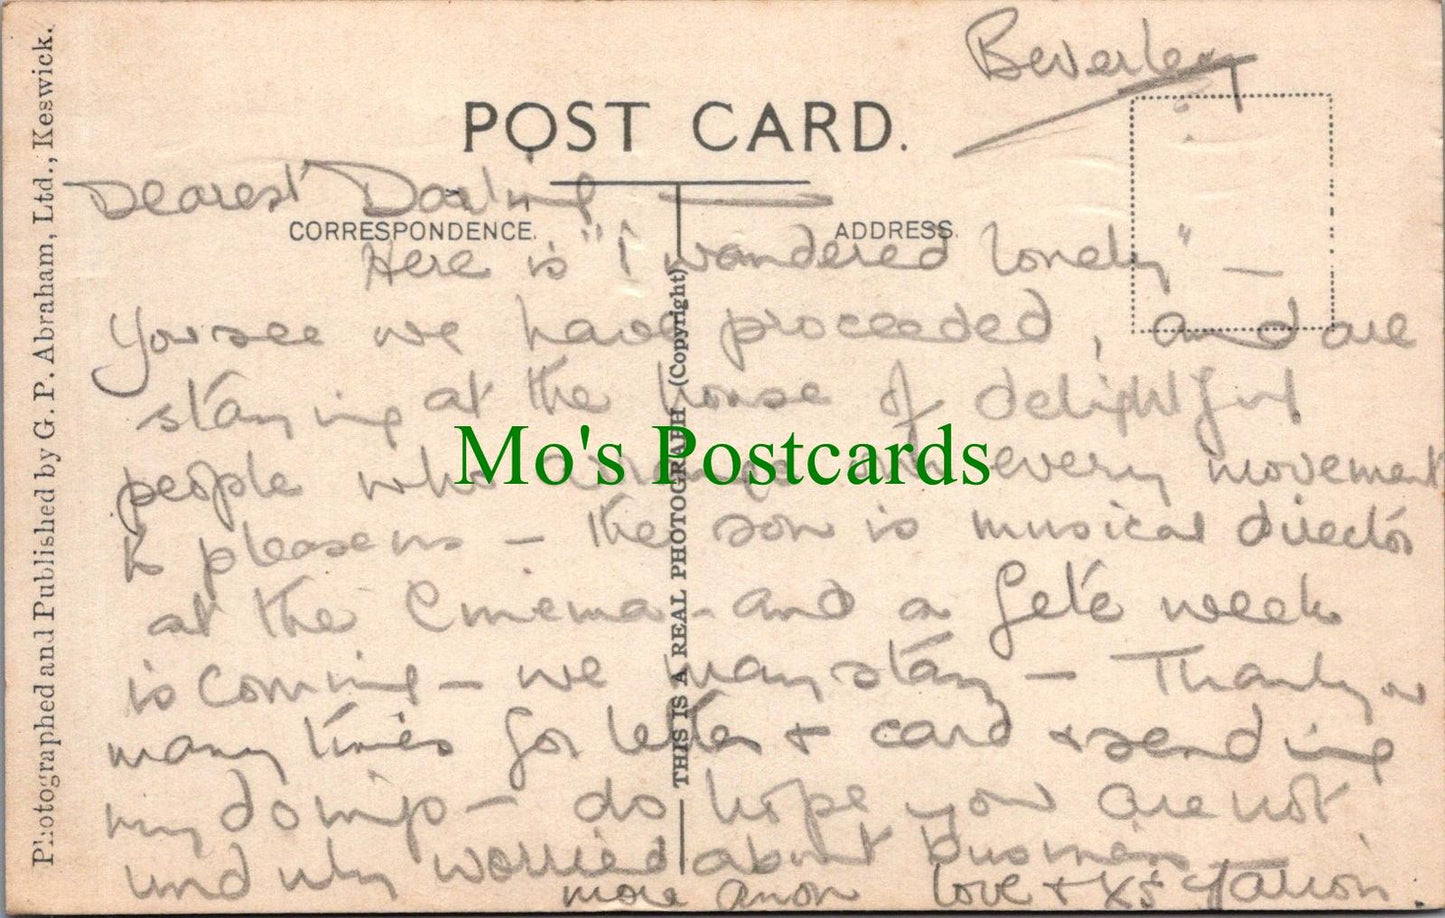 Beverley
POST CARD.
Dearest Darling
CORRESPONDENCE.
ADDRESS.
Here is "I wandered lonely" —
You see we have proceeded, and are
staying at the house of delightful
people who arrange every movement
to please us — the son is musical director
at the Cinema - and a fete week
is coming — we may stay — Thank you
many times for letter + card + sending
my — do hope you are not
unduly worried about business
more anon love + Xs
Photographed and Published by G. P. Abraham, Ltd., Keswick.
THIS IS A REAL PHOTOGRAPH (Copyright)
Mo's Postcards